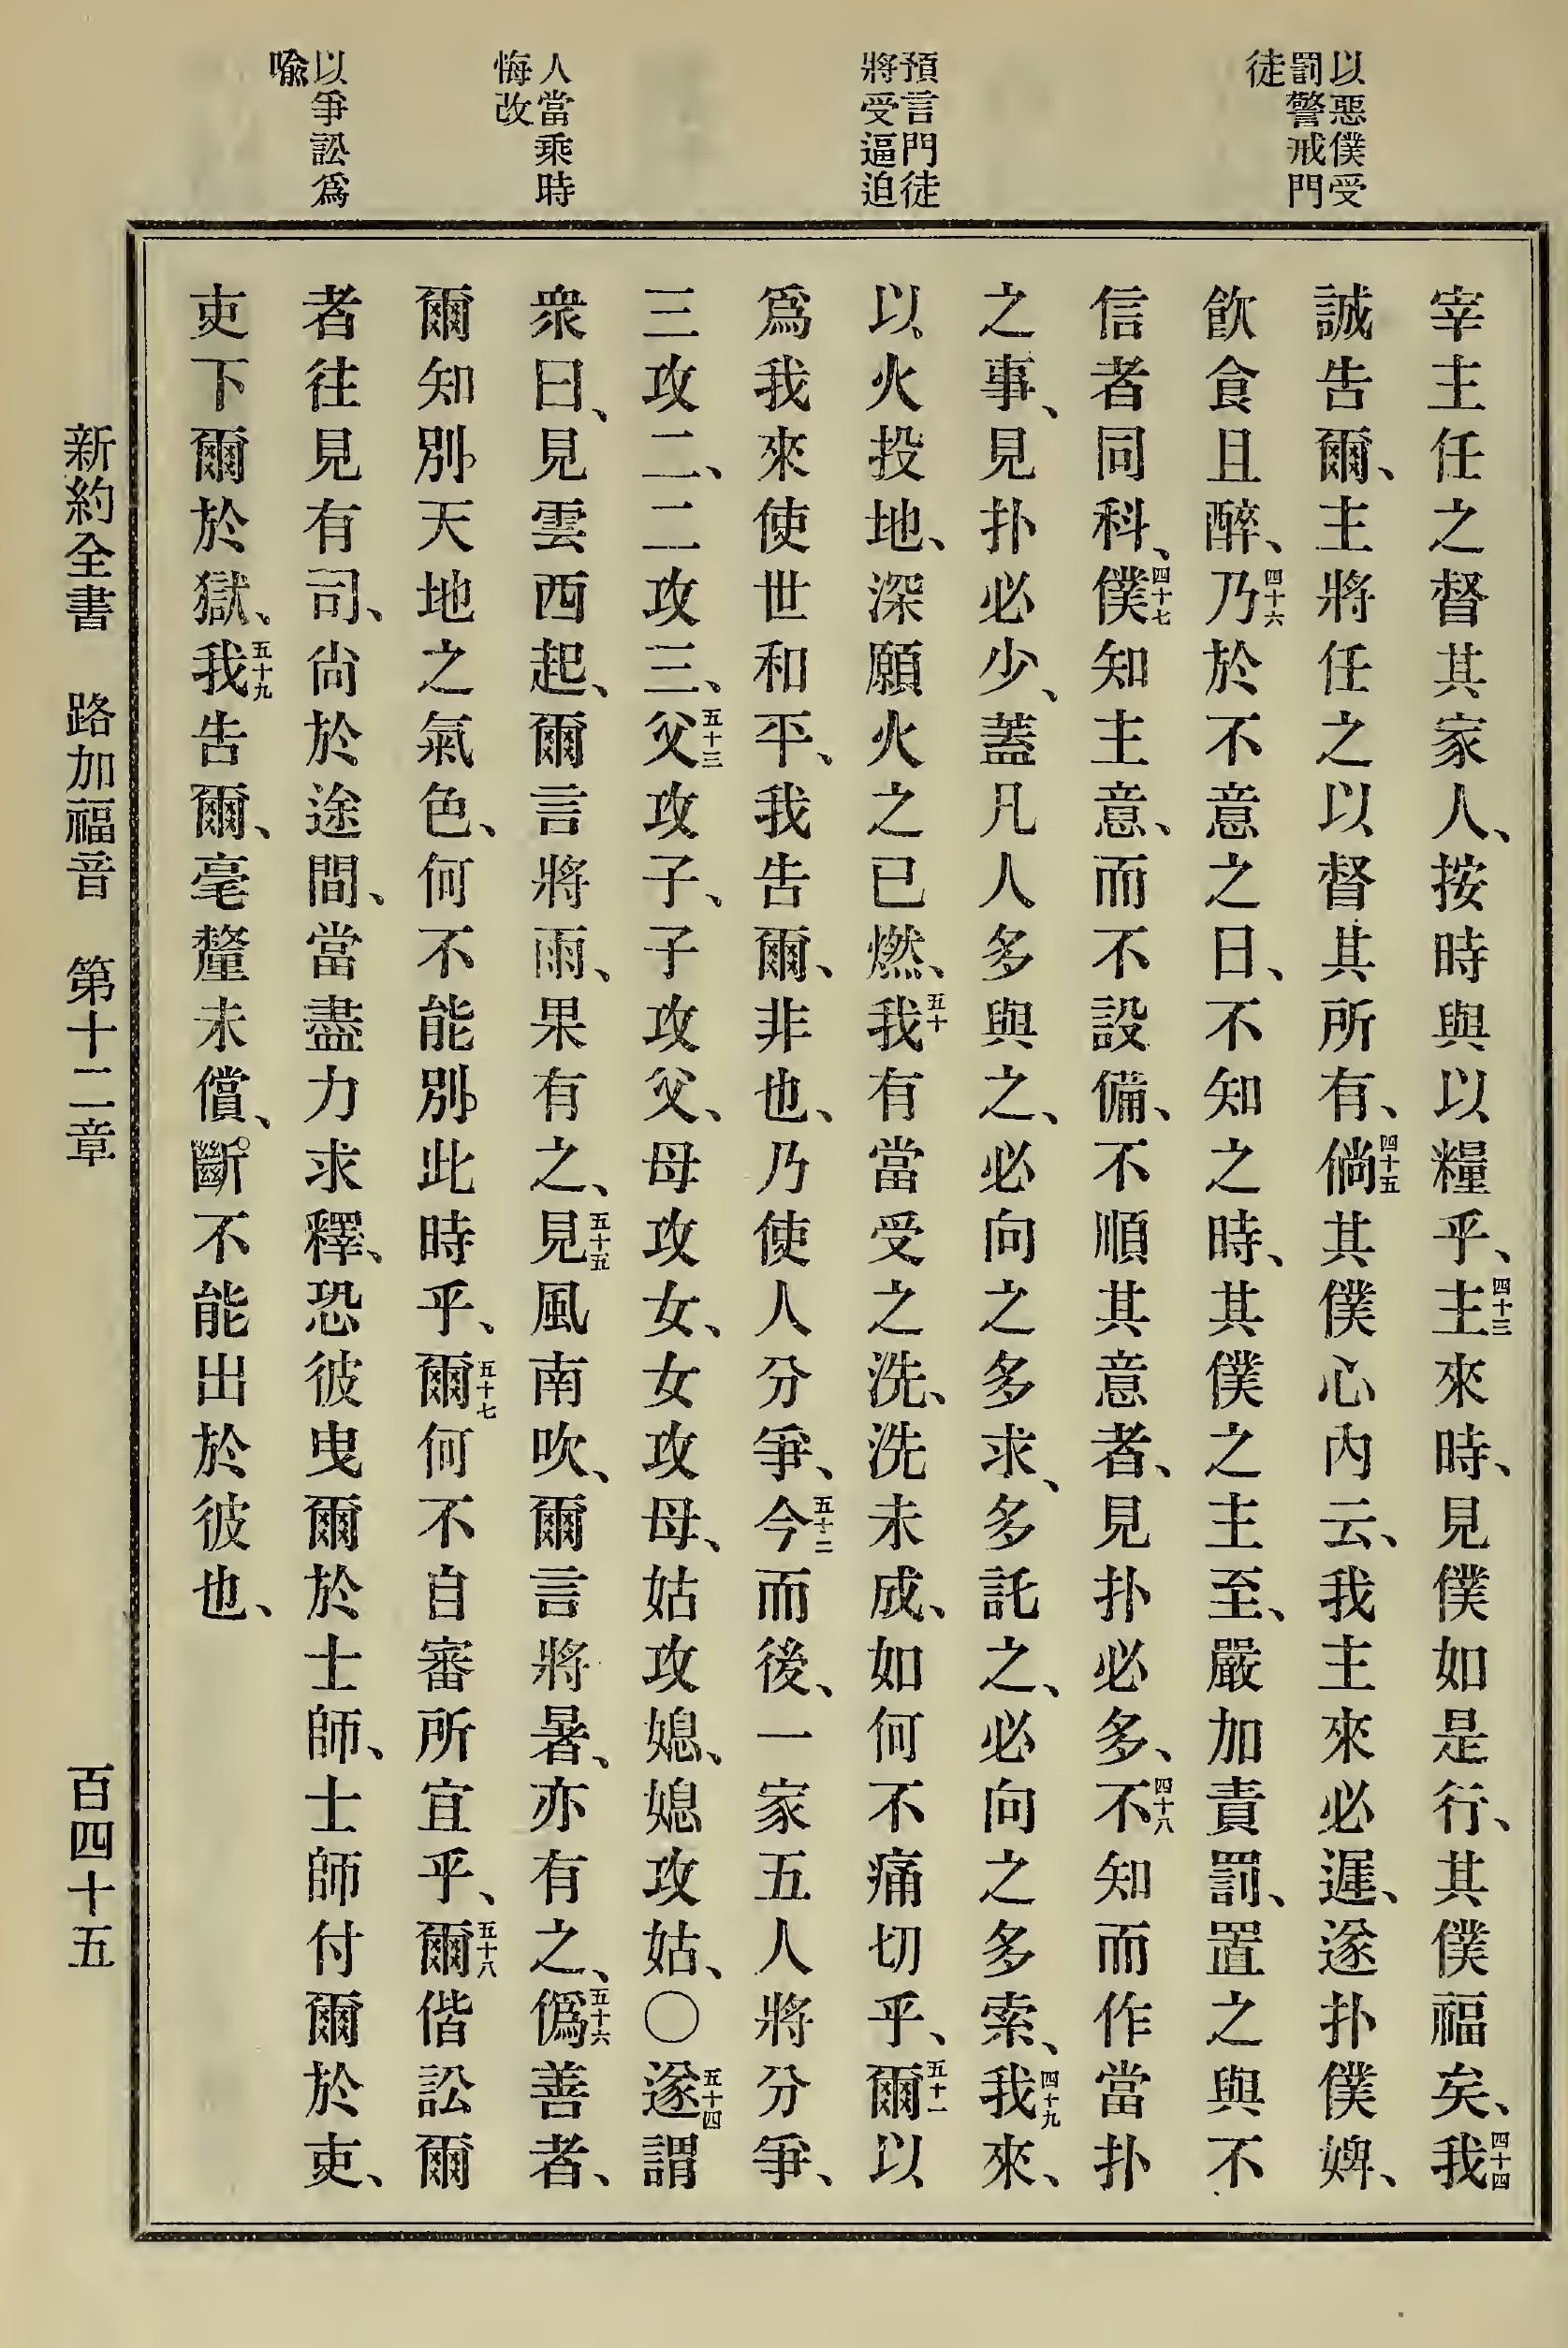 以惡僕受
罰警戒門
徒
預言門徒
將受逼迫
人當乘時
悔改
以爭訟爲
喩
宰主任之督其家人、按時與以糧乎、四十三主來時、見僕如是行、其僕福矣、四十四我
誠告爾、主將任之以督其所有、四十五倘其僕心內云、我主來必遲、遂扑僕婢、
飮食且醉、四十六乃於不意之日、不知之時、其僕之主至、嚴加責罰、置之與不
信者同科、四十七僕知主意、而不設備、不順其意者、見扑必多、四十八不知而作當扑
之事、見扑必少、蓋凡人多與之、必向之多求、多託之、必向之多索、四十九我來、
以火投地、深願火之已燃、五十我有當受之洗、洗未成、如何不痛切乎、五十一爾以
爲我來使世和平、我告爾、非也、乃使人分爭、五十二今而後、一家五人將分爭、
三攻二、二攻三、五十三父攻子、子攻父、母攻女、女攻母、姑攻媳、媳攻姑、○五十四遂謂
衆曰、見雲西起、爾言將雨、果有之、五十五見風南吹、爾言將暑、亦有之、五十六僞善者、
爾知別天地之氣色、何不能別此時乎、五十七爾何不自審所宜乎、五十八爾偕訟爾
者往見有司、尙於途間、當盡力求釋、恐彼曳爾於士師、士師付爾於吏、
吏下爾於獄、五十九我告爾、毫釐未償、斷不能出於彼也、
新約全書 路加福音 第十二章 百四十五